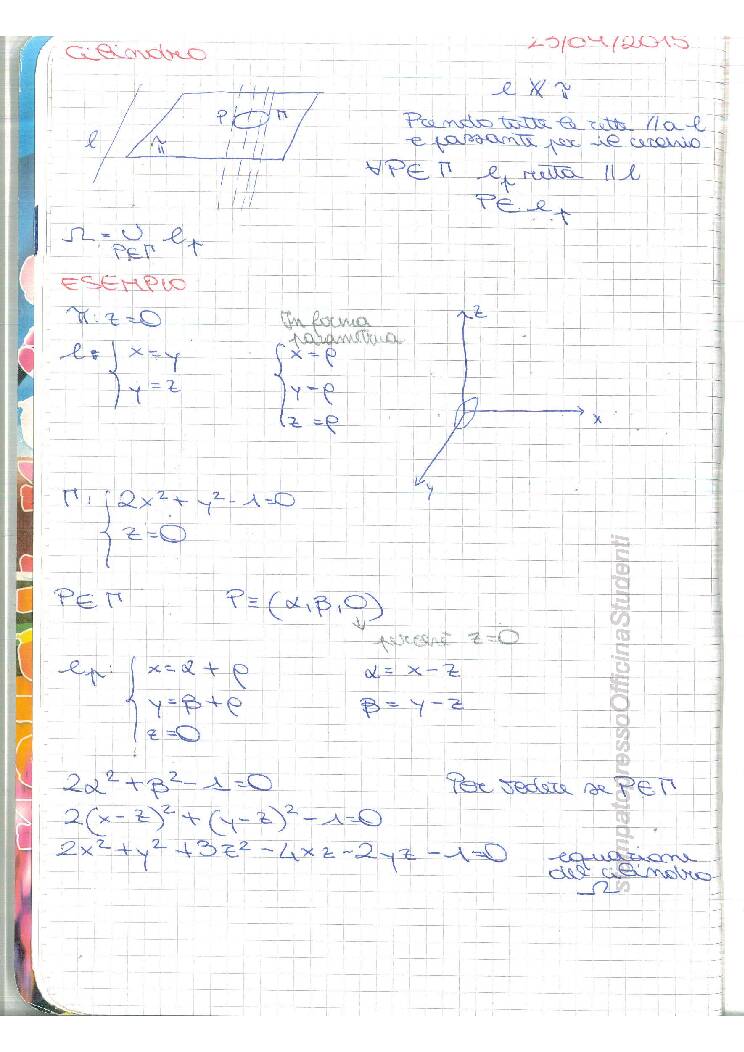 Cilindro 23/04/2015
l ∦ π
P Γ
l π
Prendo tutte le rette // a l
e passante per il cerchio
∀P∈Γ l_P retta // l
P∈ l_P
Ω = ∪ l_P
P∈Γ
ESEMPIO
π: z=0
In forma
parametrica
l: { x=y
y=z
{ x=ρ
y=ρ
z=ρ
z
x
y
Γ: { 2x²+y²-1=0
z=0
P∈Γ P≡(α,β,0)
perché z=0
l_P: { x=α+ρ α=x-z
y=β+ρ β=y-z
z=0
2α²+β²-1=0 Per vedere se P∈Γ
2(x-z)²+(y-z)²-1=0
2x²+y²+3z²-4xz-2yz-1=0 equazione
del cilindro
Ω
stampatopressoOfficinaStudenti